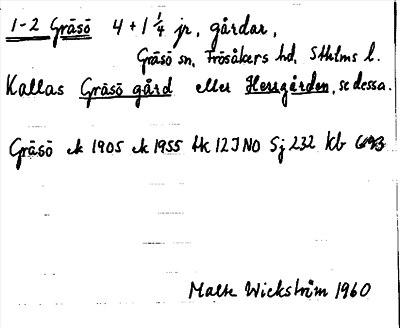 1-2 Gräsö 4 + 1 1/4 jr, gårdar,
Gräsö sn, Frösåkers hd, Sthlms l.
Kallas Gräsö gård eller Herrgården, se dessa.
Gräsö ek 1905 ek 1955 tk 12J NO Sj 232 kb
Malte Wickström 1960